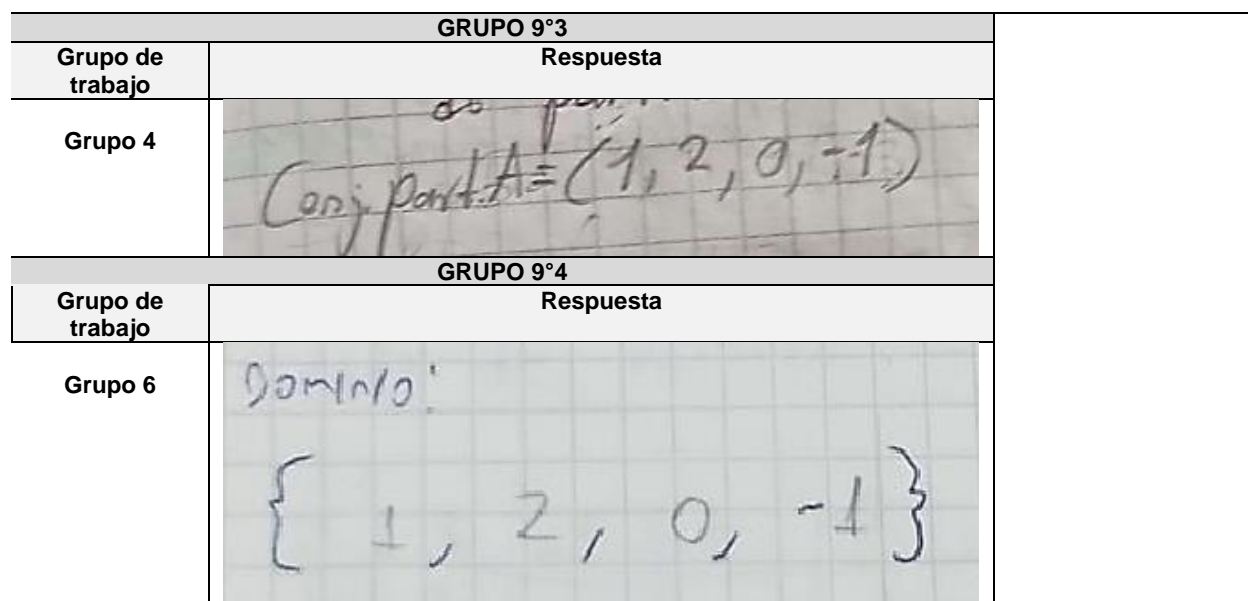 GRUPO 9°3
Grupo de trabajo
Respuesta
Grupo 4
do
Conj. part. A = (1, 2, 0, -1)
GRUPO 9°4
Grupo de trabajo
Respuesta
Grupo 6
Dominio:
{ 1, 2, 0, -1 }